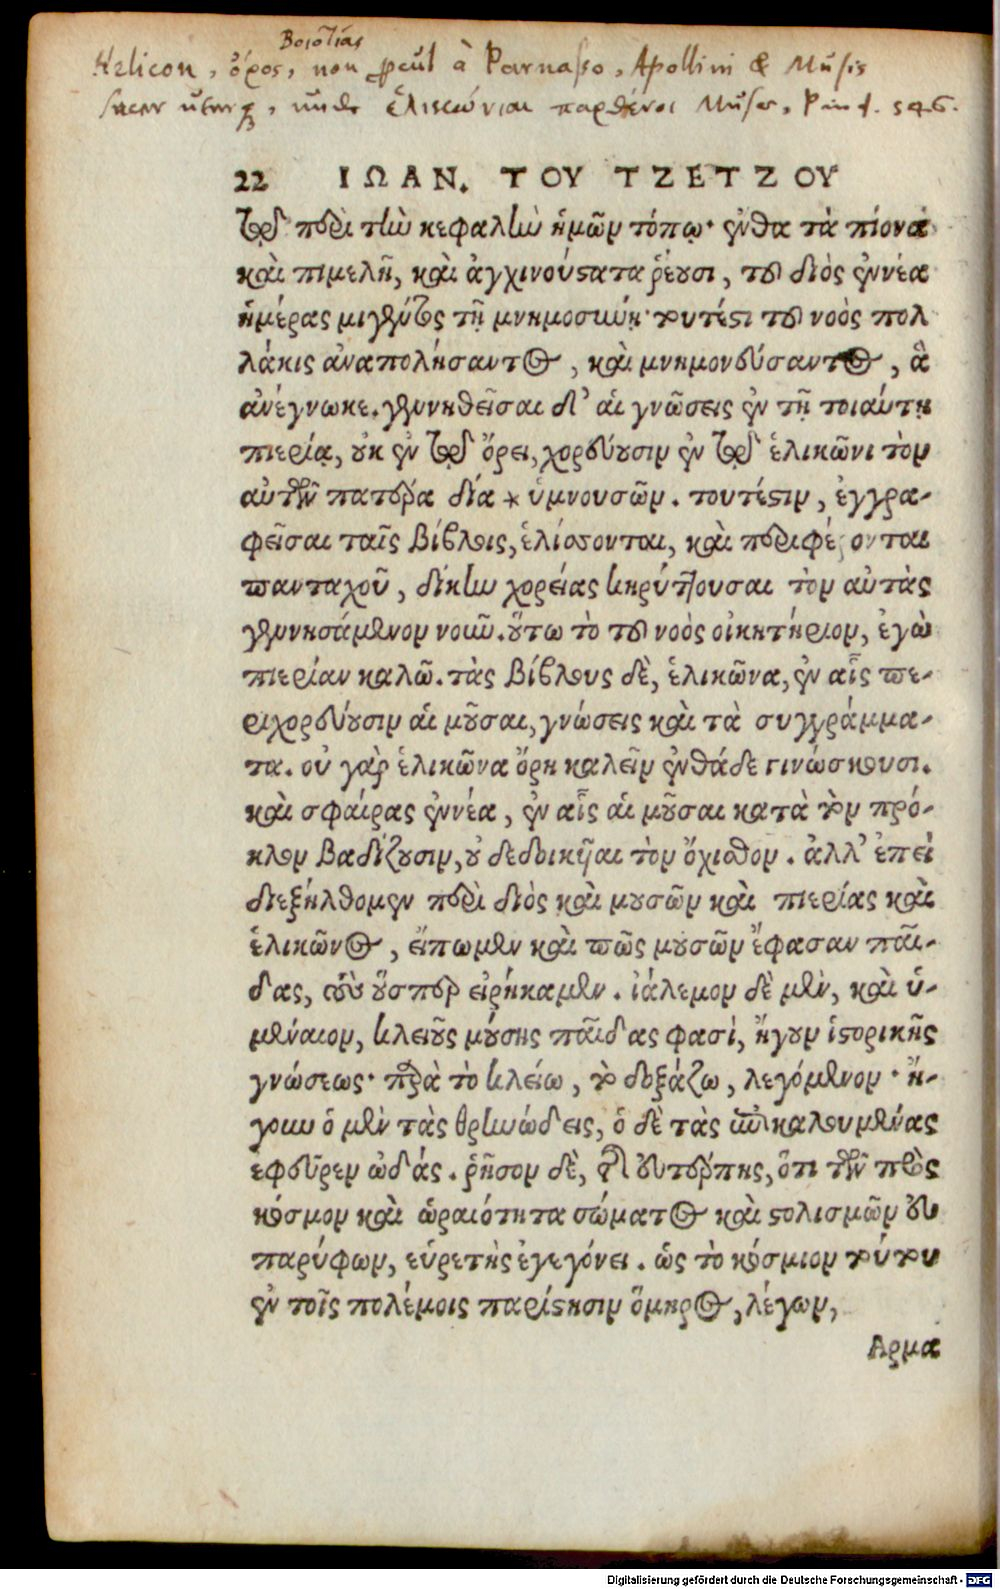 Βοιοτίας
Helicon, ὄρος, non procul à Parnasso, Apollini & Musis
sacer uterq;, unde ἑλικώνιαι παρθένοι Musae, Pind. 546.
22 ΙΩΑΝ. ΤΟΥ ΤΖΕΤΖΟΥ
τῷ περὶ τὴν κεφαλὴν ἡμῶν τόπῳ· ἔνθα τὰ πίονα
καὶ πιμελῆ, καὶ ἀγχινούστατα ῥέουσι, τοῦ διὸς ἐννέα
ἡμέρας μιγέντος τῇ μνημοσύνῃ· τουτέστι τοῦ νοὸς πολ
λάκις ἀναπολήσαντος, καὶ μνημονεύσαντος, ἃ
ἀνέγνωκε. γεννηθεῖσαι δ' αἱ γνῶσεις ἐν τῇ τοιαύτῃ
πιερίᾳ, οὐκ ἐν τῷ ὄρει, χορεύουσιν ἐν τῷ ἑλικῶνι τὸν
αὐτῶν πατέρα δία * ὑμνουσῶν. τουτέστιν, ἐγγρα-
φεῖσαι ταῖς βίβλοις, ἑλίσσονται, καὶ περιφέρονται
πανταχοῦ, δίκην χορείας κηρύττουσαι τὸν αὐτὰς
γεννησάμενον νοῦν. οὕτω τὸ τοῦ νοὸς οἰκητήριον, ἐγὼ
πιερίαν καλῶ. τὰς βίβλους δὲ, ἑλικῶνα, ἐν αἷς πε-
ριχορεύουσιν αἱ μοῦσαι, γνώσεις καὶ τὰ συγγράμμα-
τα. οὐ γὰρ ἑλικῶνα ὄρη καλεῖν ἐνθάδε γινώσκουσι.
καὶ σφαίρας ἐννέα, ἐν αἷς αἱ μοῦσαι κατὰ τὸν πρό-
κλον βαδίζουσιν, οὐ δεδοικῆαι τὸν ὄχισθον. ἀλλ' ἐπεὶ
διεξήλθομεν περὶ διὸς καὶ μουσῶν καὶ πιερίας καὶ
ἑλικῶνος, εἴπωμεν καὶ πῶς μουσῶν ἔφασαν παῖ-
δας, οὓς ὥσπερ εἰρήκαμεν. ἰάλεμον δὲ μὲν, καὶ ὑ-
μέναιον, κλειοῦς μούσης παῖδας φασὶ, ἤγουν ἱστορικῆς
γνώσεως· παρὰ τὸ κλείω, τὸ δοξάζω, λεγόμενον· ἤ-
γουν ὁ μὲν τὰς θρηνώδεις, ὁ δὲ τὰς ἐπικαλουμένας
ἐφεῦρεν ᾠδάς. ῥῆσον δὲ, τῆς εὐτέρπης, ὅτι τῶν πρὸς
κόσμον καὶ ὡραιότητα σώματος καὶ στολισμῶν εὐ
παρύφων, εὑρετὴς ἐγεγόνει. ὡς τὸ κόσμιον τούτου
ἐν τοῖς πολέμοις παρίστησιν ὅμηρος, λέγων,
Αρμα
Digitalisierung gefördert durch die Deutsche Forschungsgemeinschaft - DFG